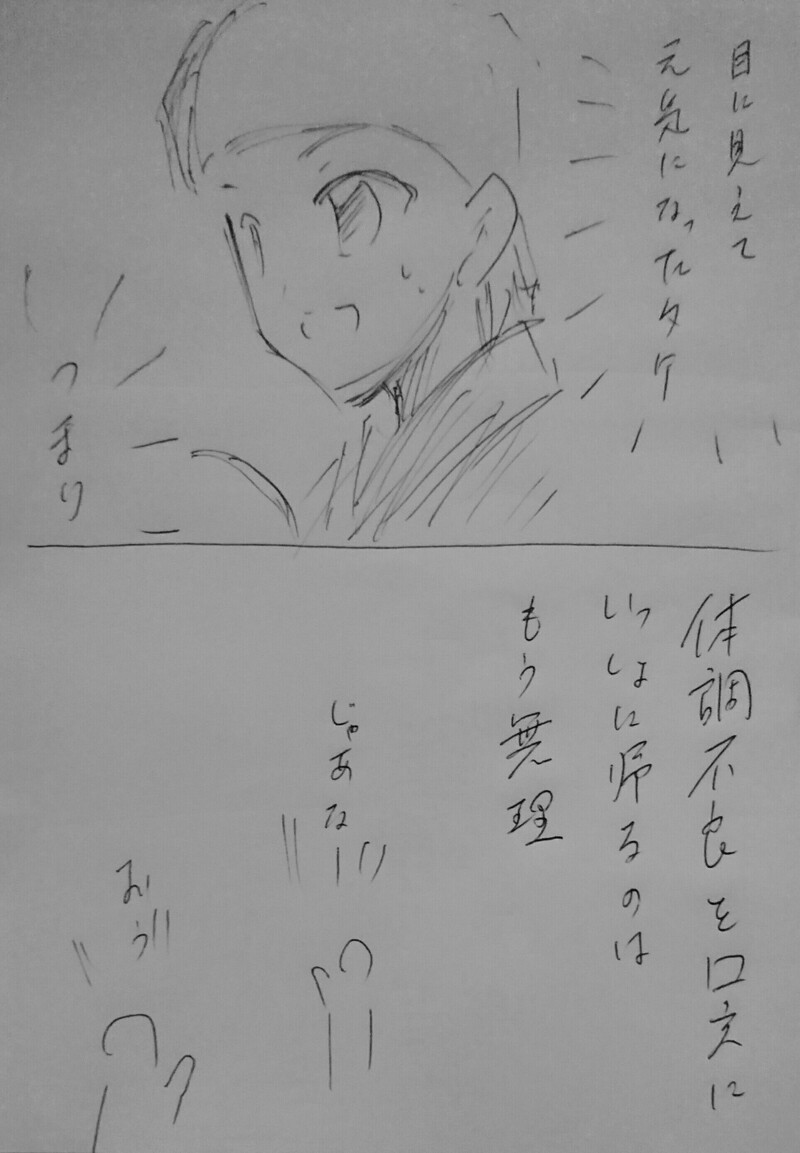 目に見えて
元気になったタケ
つまり
体調不良を口実に
いっしょに帰るのは
もう無理
じゃあなー!!
おう